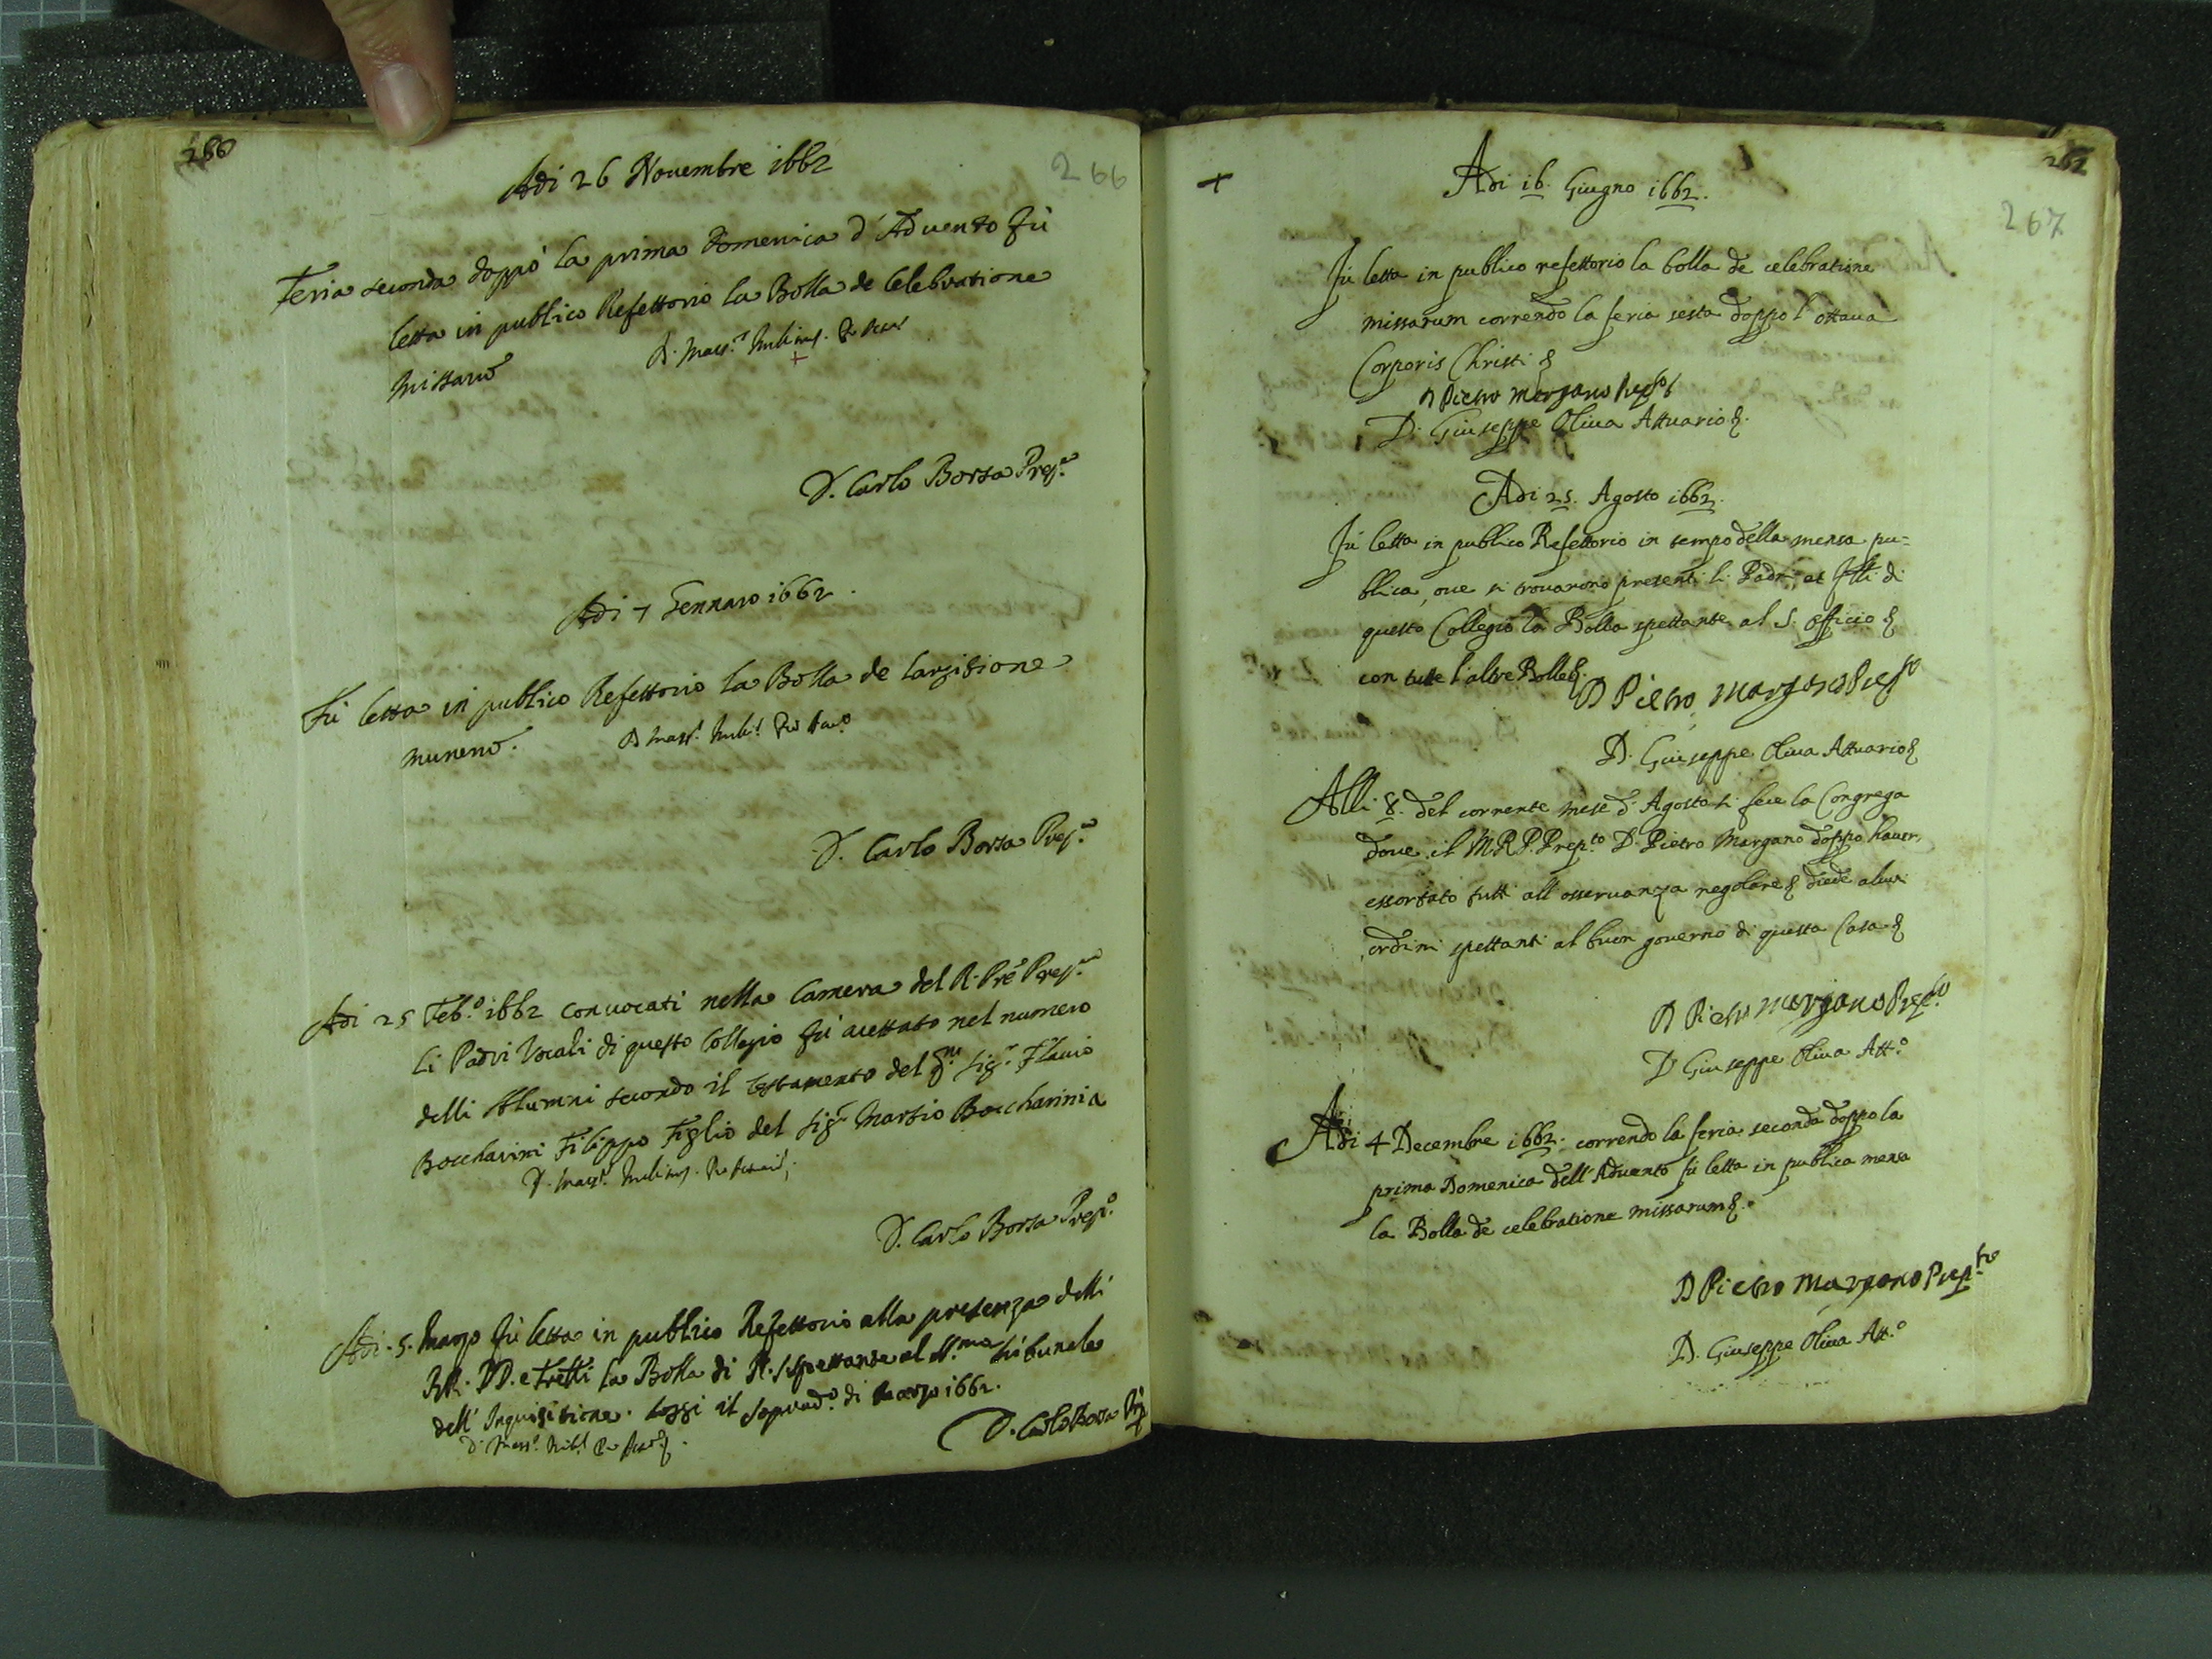 266
266
Adi 26 Nouembre 1662
Feria seconda doppò la prima Domenica d'Aduento fù
letta in publico Refettorio la Bolla de Celebratione
Missarū
D. Carlo Borsa Prep.to
Adi 7 Gennaro 1662.
Fù letta in publico Refettorio la Bolla de largitione
munerū.
D. Carlo Borsa Prep.to
Adi 25 Feb.º 1662 conuocati nella Camera del R. Pre Prep.to
li Padri Vocali di questo Collegio fù acettato nel numero
delli Alumni secondo il testamento del Sig.r Flauio
Bocchavini Filippo Figlio del Sig.r Martio Bocchavini
D. Carlo Borsa Prep.º
Adi .5. Marzo fù letta in publico Refettorio alla presenza delli
RR. PP. e Fretti la Bolla di spettante al Tribunale
dell'Inquisitione. di Marzo 1662.
D. Carlo Borsa Prep
262
267
+
Adi 16. Giugno 1662.
Fù letta in publico refettorio la bolla de celebratione
missarum correndo la feria sesta doppo l'ottaua
Corporis Christi &
D Pietro Margano Prep.to
D. Giuseppe Oliua Attuario &.
Adi 25. Agosto 1662.
Fù letta in publico Refettorio in tempo della mensa pu=
blica, oue si trouarono presenti li Padri, et flli di
questo Collegio la Bolla spettante al S. Officio &
con tutte l'altre Bolle &.
D Pietro Margano Prep.to
D. Giuseppe Oliua Attuario &
Alli 8. del corrente mese d'Agosto si fece la Congrega
doue il M.R.P. Prep.to D. Pietro Margano doppo hauer,
essortato tutti all'osseruanza regolare & diede alcuni
ordini spettanti al buon gouerno di questa Casa &
D Pietro Margano Prep.to
D Giuseppe Oliua Att.º
Adi 4 Decembre 1662. correndo la feria seconda doppo la
prima Domenica dell'Aduento fù letta in publica mensa
la Bolla de celebratione missarum &.
D Pietro Margano Prep.to
D. Giuseppe Oliua Att.º